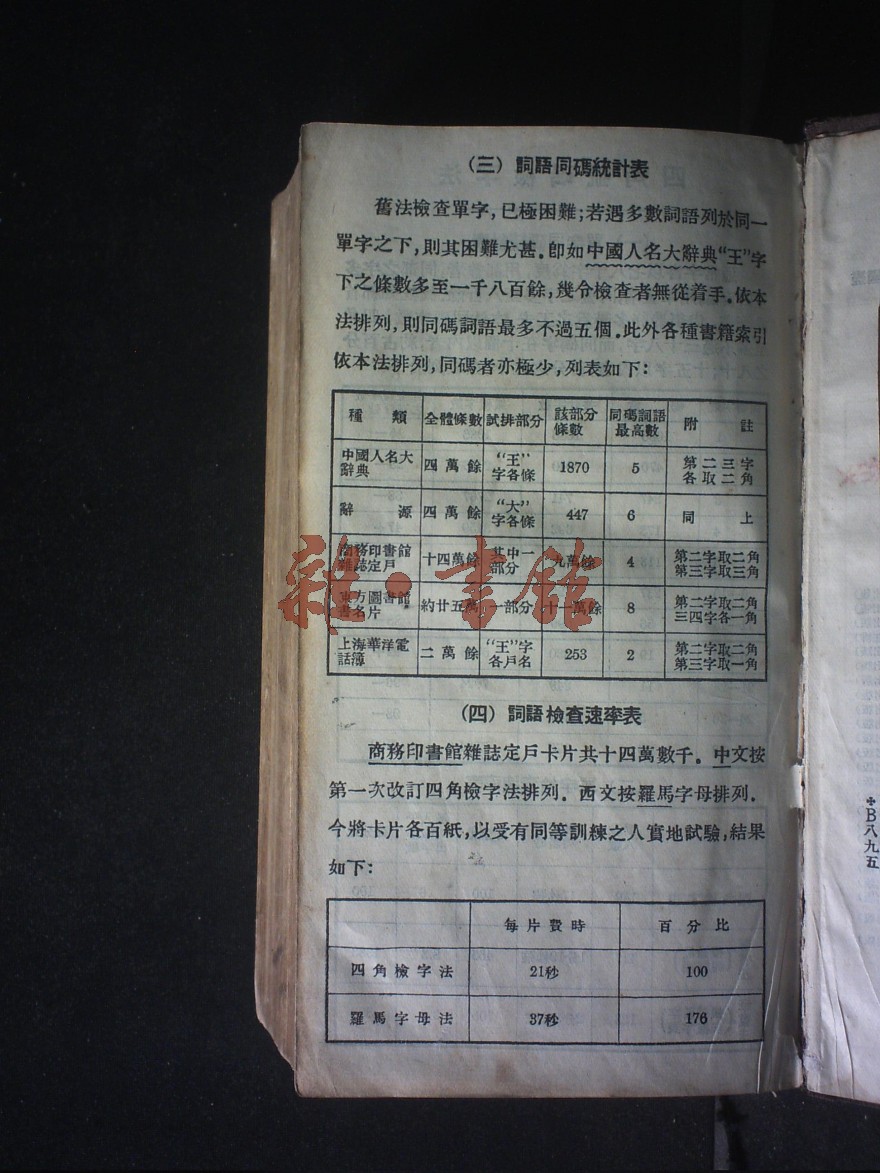 （三）詞語同碼統計表
舊法檢查單字，已極困難；若遇多數詞語列於同一
單字之下，則其困難尤甚。卽如中國人名大辭典“王”字
下之條數多至一千八百餘，幾令檢查者無從着手。依本
法排列，則同碼詞語最多不過五個。此外各種書籍索引
依本法排列，同碼者亦極少，列表如下：
種類 全體條數 試排部分 該部分條數 同碼詞語最高數 附註
中國人名大辭典 四萬餘 “王”字各條 1870 5 第二三字各取二角
辭源 四萬餘 “大”字各條 447 6 同上
商務印書館雜誌定戶 十四萬餘 其中一部分 九萬餘 4 第二字取二角第三字取三角
東方圖書館書名片 約廿五萬 一部分 十一萬餘 8 第二字取二角三四字各一角
上海華洋電話簿 二萬餘 “王”字各戶名 253 2 第二字取二角第三字取一角
雜·書館
（四）詞語檢查速率表
商務印書館雜誌定戶卡片共十四萬數千。中文按
第一次改訂四角檢字法排列。西文按羅馬字母排列。
今將卡片各百紙，以受有同等訓練之人實地試驗，結果
如下：
每片費時 百分比
四角檢字法 21秒 100
羅馬字母法 37秒 176
✢B八九五